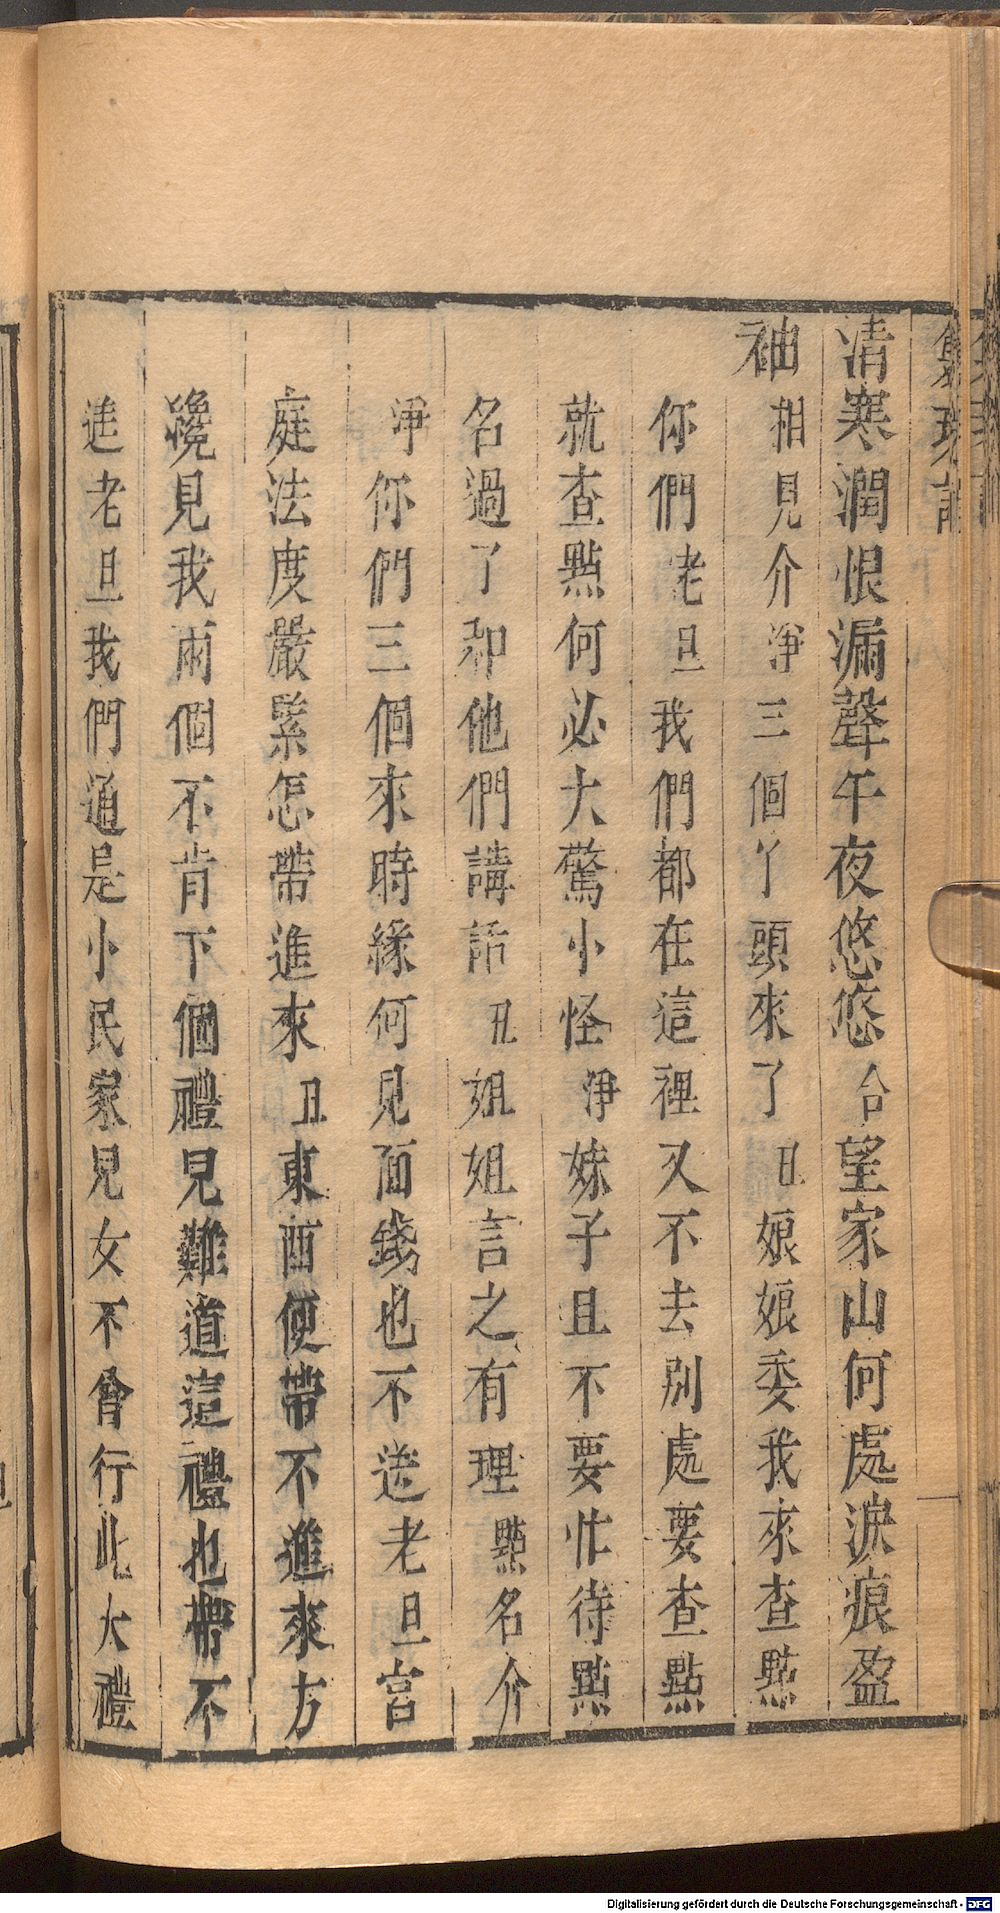 清寒潤恨漏聲午夜悠悠合望家山何處淚痕盈
袖相見介淨三個丫頭來了丑娘娘委我來查點
你們老旦我們都在這裡又不去別處要查點
就查點何必大驚小怪淨妹子且不要忙待點
名過了却他們講話丑姐姐言之有理點名介
淨你們三個來時緣何見面錢也不送老旦宮
庭法度嚴緊怎帶進來丑東西便帶不進來方
纔見我兩個不肯下個禮兒難道這禮也帶不
進老旦我們通是小民家兒女不曾行此大禮
Digitalisierung gefördert durch die Deutsche Forschungsgemeinschaft - DFG